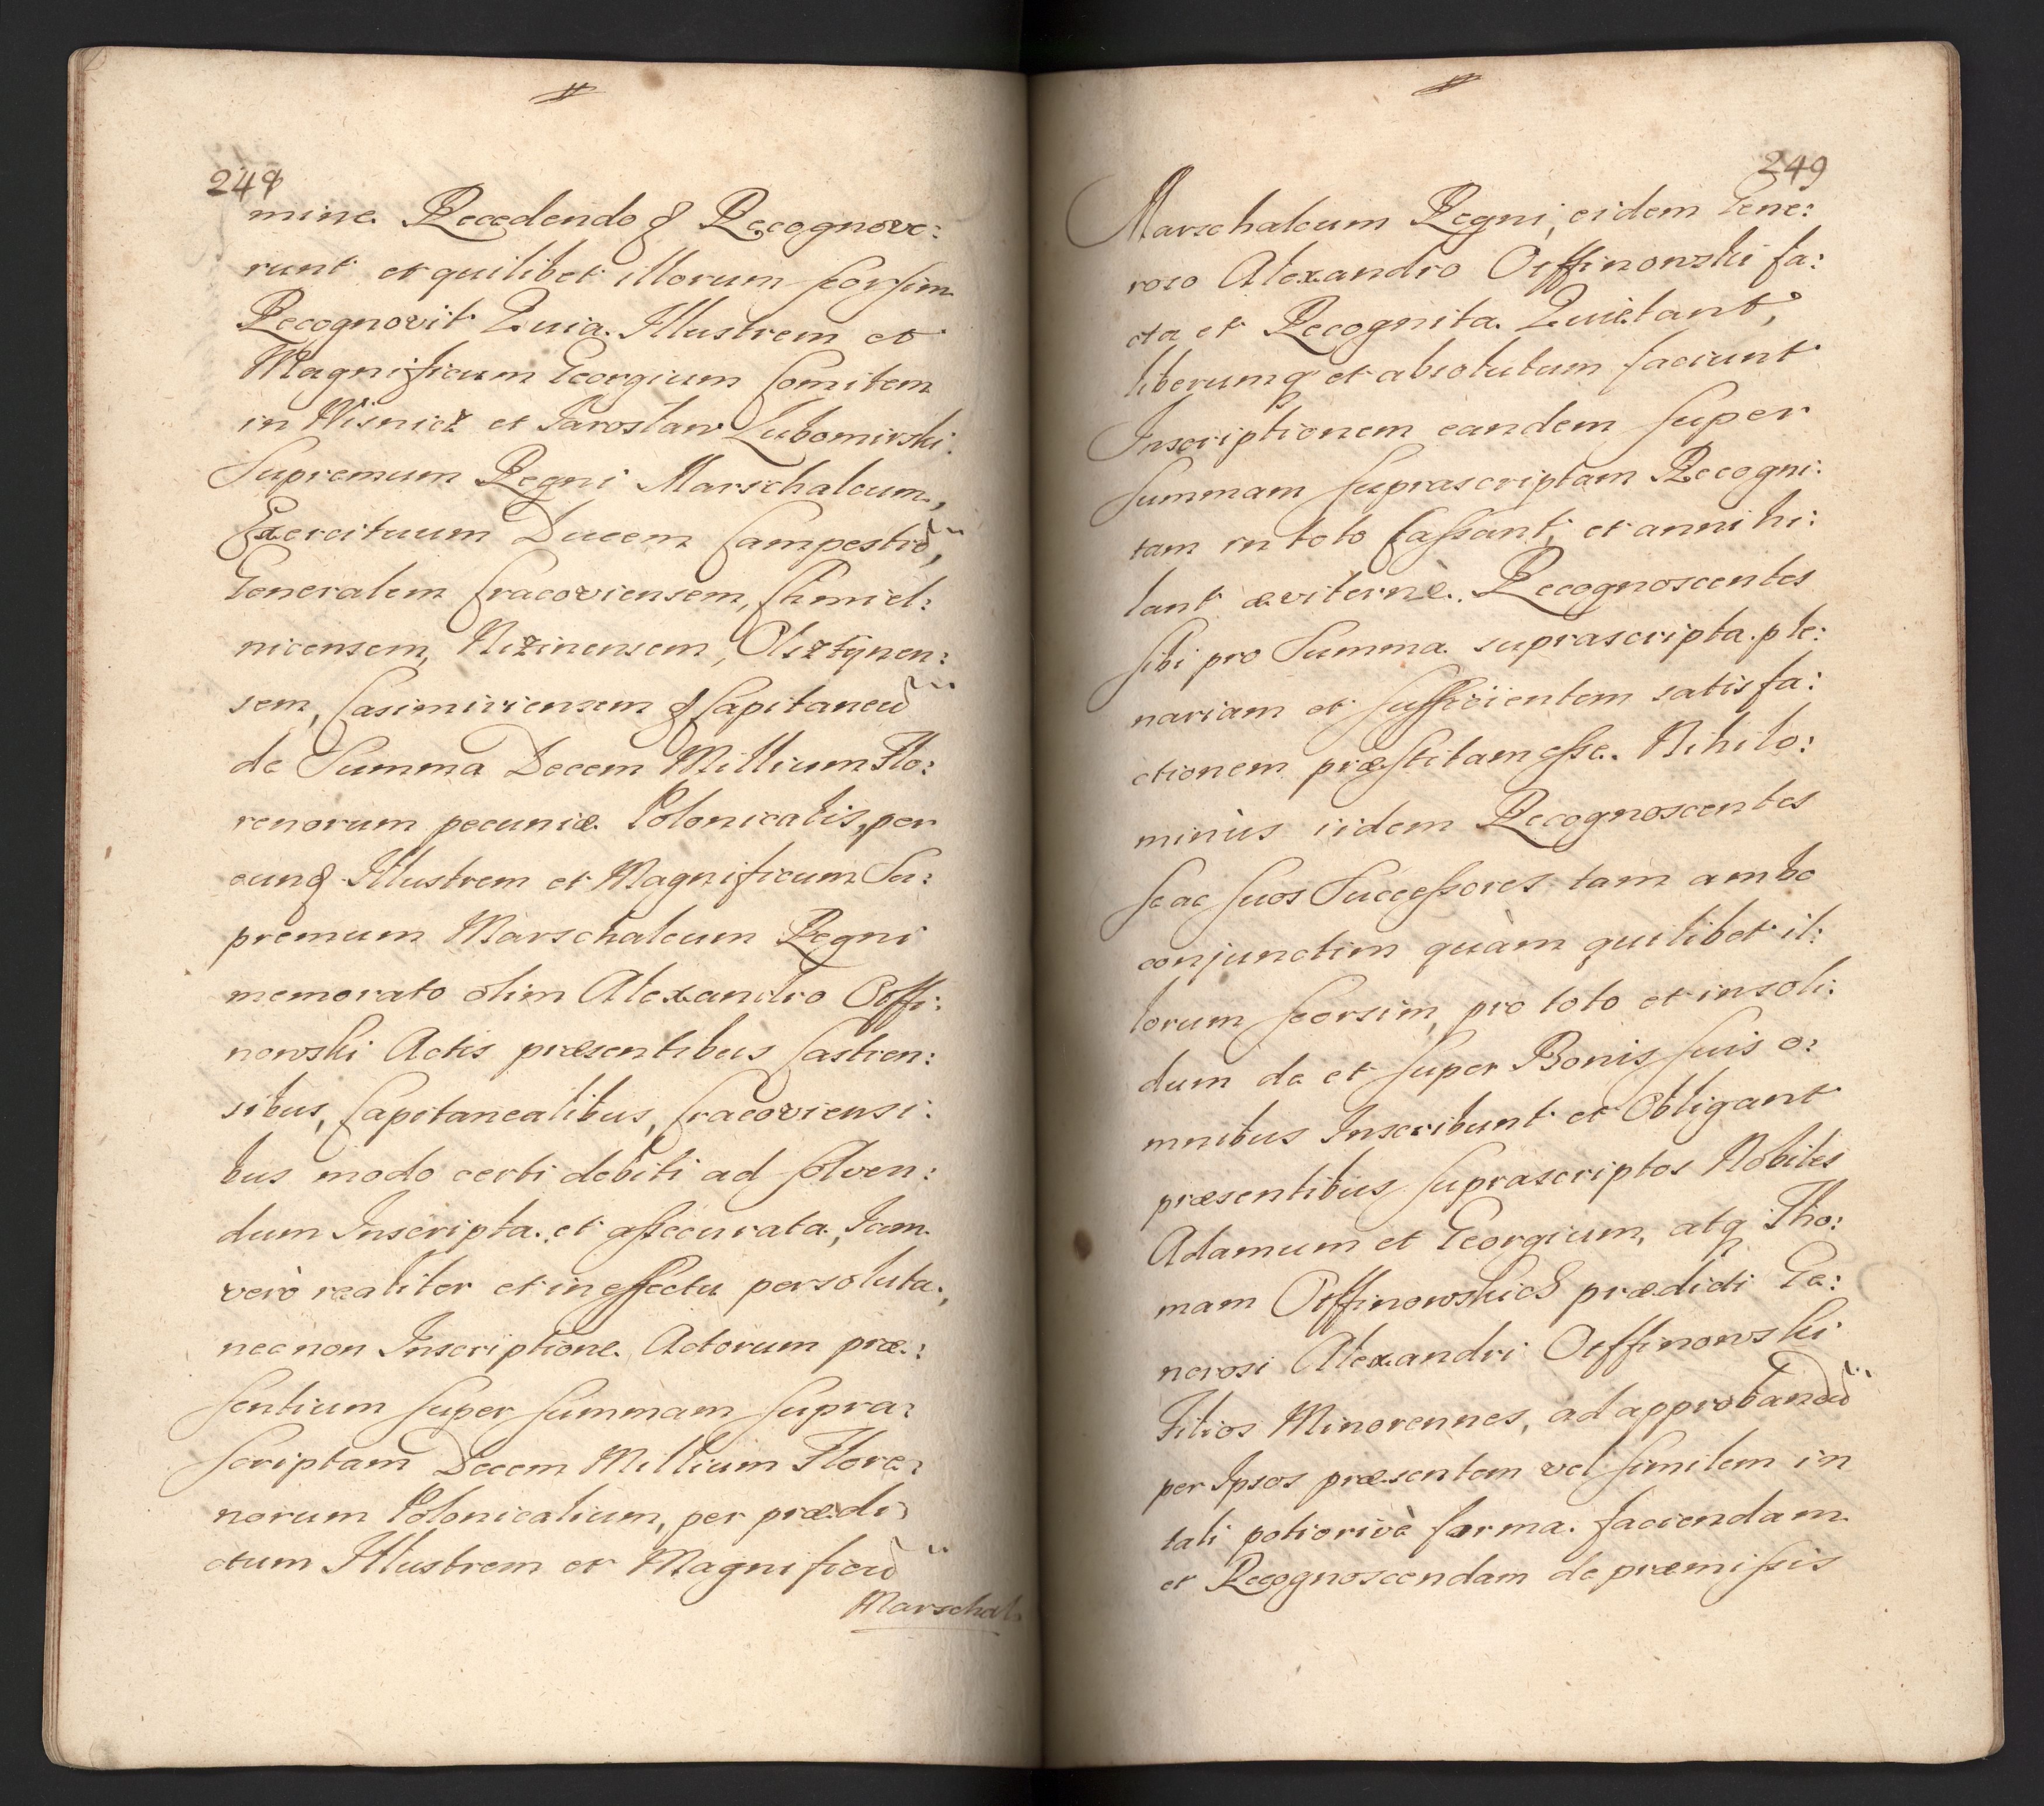 248
mine Recedendo & Recognove:
runt et quilibet illorum seorsim
Recognovit Quia Illustrem et
Magnificum Georgium Comitem
in Wisnicz et Jaroslaw Lubomirski
Supremum Regni Marschalcum,
Exercituum Ducem Campestrē,
Generalem Cracoviensem, Chmiel:
nicensem, Nizinensem, Olsztynen:
sem, Casimiriensem & Capitaneū
de Summa Decem Millium Flo:
renorum pecuniæ Polonicalis, per
eund Illustrem et Magnificum Su:
premum Marschalcum Regni
memorato olim Alexandro Orffi:
nowski Actis præsentibus Castren:
sibus, Capitanealibus, Cracoviensi:
bus modo certi debiti ad solven:
dum Inscripta et assecurata, Jam
verò realiter et in effectu persoluta,
necnon Inscriptione Actorum præ:
sentium super summam supra:
scriptam Decem Millium Flore:
norum Polonicalium, per prædi:
ctum Illustrem et Magnificū
Marschal:
249
Marschalcum Regni, eidem Gene:
roso Alexandro Orffinowski fa:
cta et Recognita Quietant,
liberumq et absolutum faciunt
Inscriptionem eandem super
summam suprascriptam Recogni:
tam in toto Cassant, et annihi:
lant æviternè. Recognoscentes
sibi pro Summa suprascripta ple:
nariam et sufficientem satisfa:
ctionem præstitam esse. Nihilo:
minùs iidem Recognoscentes
se ac suos Successores tam ambo
conjunctim quàm quilibet il:
lorum seorsim, pro toto et insoli:
dum de et super Bonis suis o:
mnibus Inscribunt et Obligant
præsentibus suprascriptos Nobiles
Adamum et Georgium, atq Tho:
mam Orffinowskie prædicti Ge:
nerosi Alexandri Orffinowski
Filios Minorennes, ad approbandū
per Ipsos præsentem vel similem in
tali potiorivè forma faciendam
et Recognoscendam de præmissis